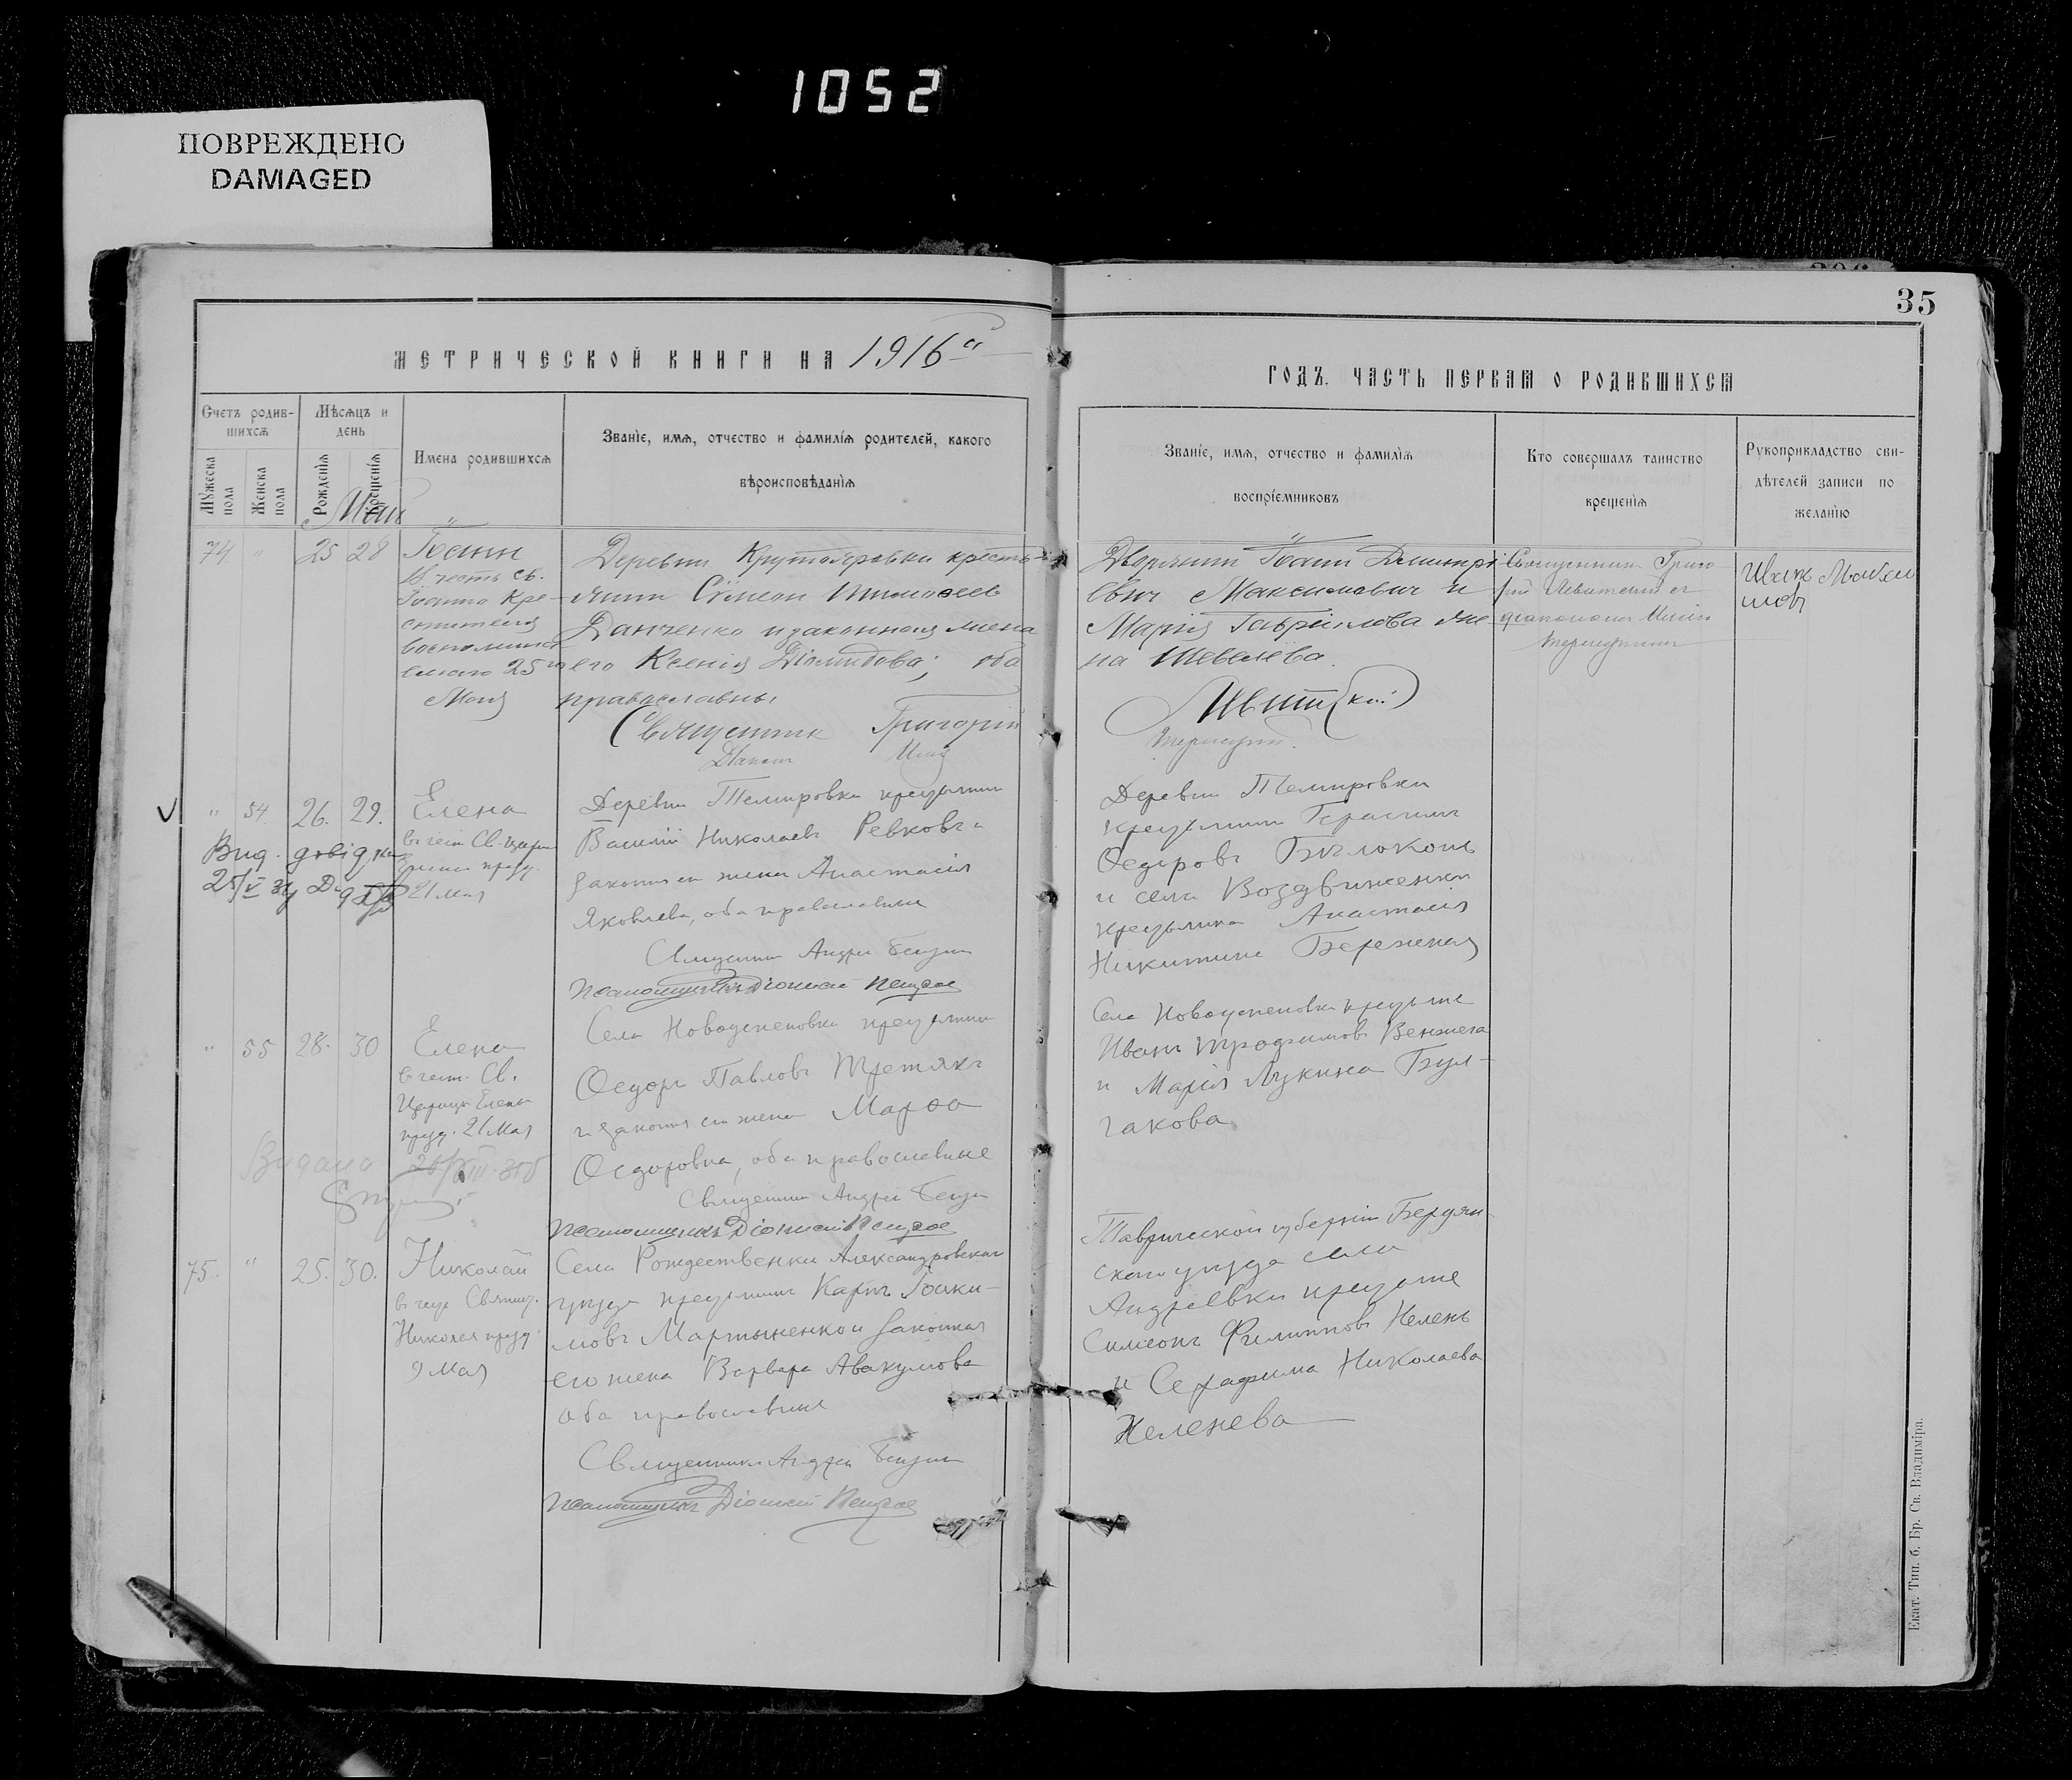 1052
ПОВРЕЖДЕНО
DAMAGED
35
МЕТРИЧЕСКОЙ КНИГИ НА 1916й
ГОДЪ. ЧАСТЬ ПЕРВАЯ О РОДИВШИХСЯ
Счетъ родив-
шихсѧ
Мѣсѧцъ и
день
Мужеска
пола
Женска
пола
Рожденїѧ
Крещенїѧ
Имена родившихсѧ
Званїе, имѧ, отчество и фамилїѧ родителей, какого
вѣроисповѣданїѧ
Званїе, имѧ, отчество и фамилїѧ
воспрїемниковъ
Кто совершалъ таинство
крещенїѧ
Рукоприкладство сви-
дѣтелей записи по
желанїю
Май
74 " 25 28
Іоанн
В честь св.
Іоанна Кре-
стителя
воспомина
емого 25го
Мая
Деревни Крутояровки кресть-
янин Сѵмеон Тимоѳеев
Данченко и законная жена
его Ксенія Діомидова; оба
православны
Священник Григорій
Діакон
Дворянин Іоанн Димитрі
евич Максимович и
Марія Гавріилова же
на Шевелева
Священник Григо
рій Левитский с
діаконом
" 54 26. 29.
Елена
в чест Св. Цари
21 мая
Вид. довідка
Деревни Темировки крестьянин
Василій Николаевъ Ревковъ и
законная его жена Анастасія
Яковлева, оба православные
Священник Андрей
Псаломщикъ Діонисий
Деревни Темировки
крестьянин Герасим
Ѳедоровъ Бѣлоконь
и села Воздвиженки
крестьянка Анастасія
Никитина Бережная
" 55 28. 30
Елена
в чест. Св.
Царицы Елены
празд. 21 Мая
Видана
Села Новоуспеновки крестьянин
Ѳедоръ Павловъ Третякъ
и законная его жена Марѳа
Ѳедоровна, оба православные
Священник Андрей
Псаломщикъ Діонисий
Села Новоуспеновки крестьяне
Иванъ Трофимовъ Венжега
и Марія Лукина Бул-
гакова
75. " 25. 30.
Николай
в честь Святит.
Николая празд.
9 Мая
Села Рождественки Александровскаго
уѣзда крестьянин Карпъ Іоаки-
мовъ Мартыненко и законная
его жена Варвара Авакумова
оба православные
Священник Андрей
Псаломщикъ Діонисий
Таврической губерніи Бердян
скаго уѣзда села
Андреевки крестьяне
Симеонъ Филипповъ Желенъ
и Серафима Николаева
Желенева
Екат. Тип. б. Бр. Св. Владиміра.